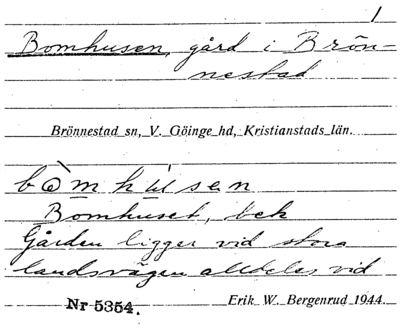 1
Bomhusen, gård i Brön-
nestad
Brönnestad sn, V. Göinge hd, Kristianstads län.
bòmhúsen
Bomhuset, bek
Gården ligger vid stora
landsvägen alldeles vid
Nr 5354. Erik W. Bergenrud 1944.